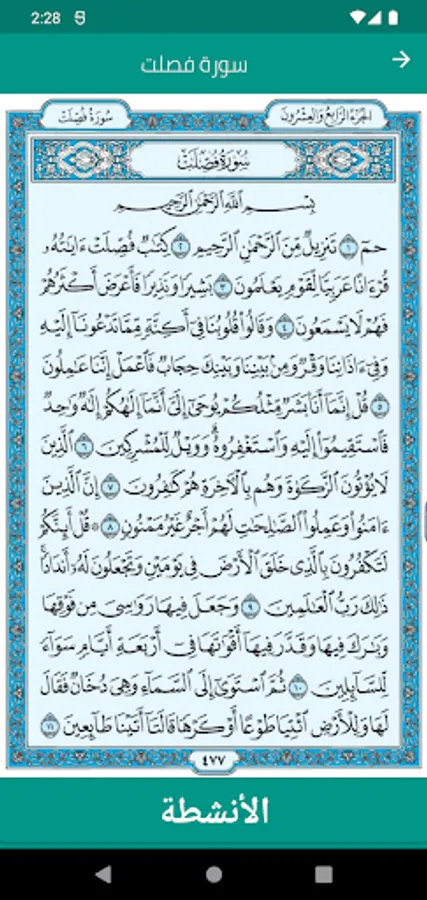 2:28
سورة فصلت
سُورَةُ فُصِّلَتْ
الجُزْءُ الرَّابِعُ وَالعِشْرُونَ
سُورَةُ فُصِّلَتْ
بِسْمِ اللَّهِ الرَّحْمَٰنِ الرَّحِيمِ
حمٓ ١ تَنزِيلٌ مِّنَ ٱلرَّحْمَٰنِ ٱلرَّحِيمِ ٢ كِتَٰبٌ فُصِّلَتْ ءَايَٰتُهُۥ
قُرْءَانًا عَرَبِيًّا لِّقَوْمٍ يَعْلَمُونَ ٣ بَشِيرًا وَنَذِيرًا فَأَعْرَضَ أَكْثَرُهُمْ
فَهُمْ لَا يَسْمَعُونَ ٤ وَقَالُوا۟ قُلُوبُنَا فِىٓ أَكِنَّةٍ مِّمَّا تَدْعُونَآ إِلَيْهِ
وَفِىٓ ءَاذَانِنَا وَقْرٌ وَمِنۢ بَيْنِنَا وَبَيْنِكَ حِجَابٌ فَٱعْمَلْ إِنَّنَا عَٰمِلُونَ
٥ قُلْ إِنَّمَآ أَنَا۠ بَشَرٌ مِّثْلُكُمْ يُوحَىٰٓ إِلَىَّ أَنَّمَآ إِلَٰهُكُمْ إِلَٰهٌ وَٰحِدٌ
فَٱسْتَقِيمُوٓا۟ إِلَيْهِ وَٱسْتَغْفِرُوهُ ۗ وَوَيْلٌ لِّلْمُشْرِكِينَ ٦ ٱلَّذِينَ
لَا يُؤْتُونَ ٱلزَّكَوٰةَ وَهُم بِٱلْءَاخِرَةِ هُمْ كَٰفِرُونَ ٧ إِنَّ ٱلَّذِينَ
ءَامَنُوا۟ وَعَمِلُوا۟ ٱلصَّٰلِحَٰتِ لَهُمْ أَجْرٌ غَيْرُ مَمْنُونٍ ٨ ۞ قُلْ أَئِنَّكُمْ
لَتَكْفُرُونَ بِٱلَّذِى خَلَقَ ٱلْأَرْضَ فِى يَوْمَيْنِ وَتَجْعَلُونَ لَهُۥٓ أَندَادًا ۚ
ذَٰلِكَ رَبُّ ٱلْعَٰلَمِينَ ٩ وَجَعَلَ فِيهَا رَوَٰسِىَ مِن فَوْقِهَا
وَبَٰرَكَ فِيهَا وَقَدَّرَ فِيهَآ أَقْوَٰتَهَا فِىٓ أَرْبَعَةِ أَيَّامٍ سَوَآءً
لِّلسَّآئِلِينَ ١٠ ثُمَّ ٱسْتَوَىٰٓ إِلَى ٱلسَّمَآءِ وَهِىَ دُخَانٌ فَقَالَ
لَهَا وَلِلْأَرْضِ ٱئْتِيَا طَوْعًا أَوْ كَرْهًا قَالَتَآ أَتَيْنَا طَآئِعِينَ ١١
٤٧٧
الأنشطة